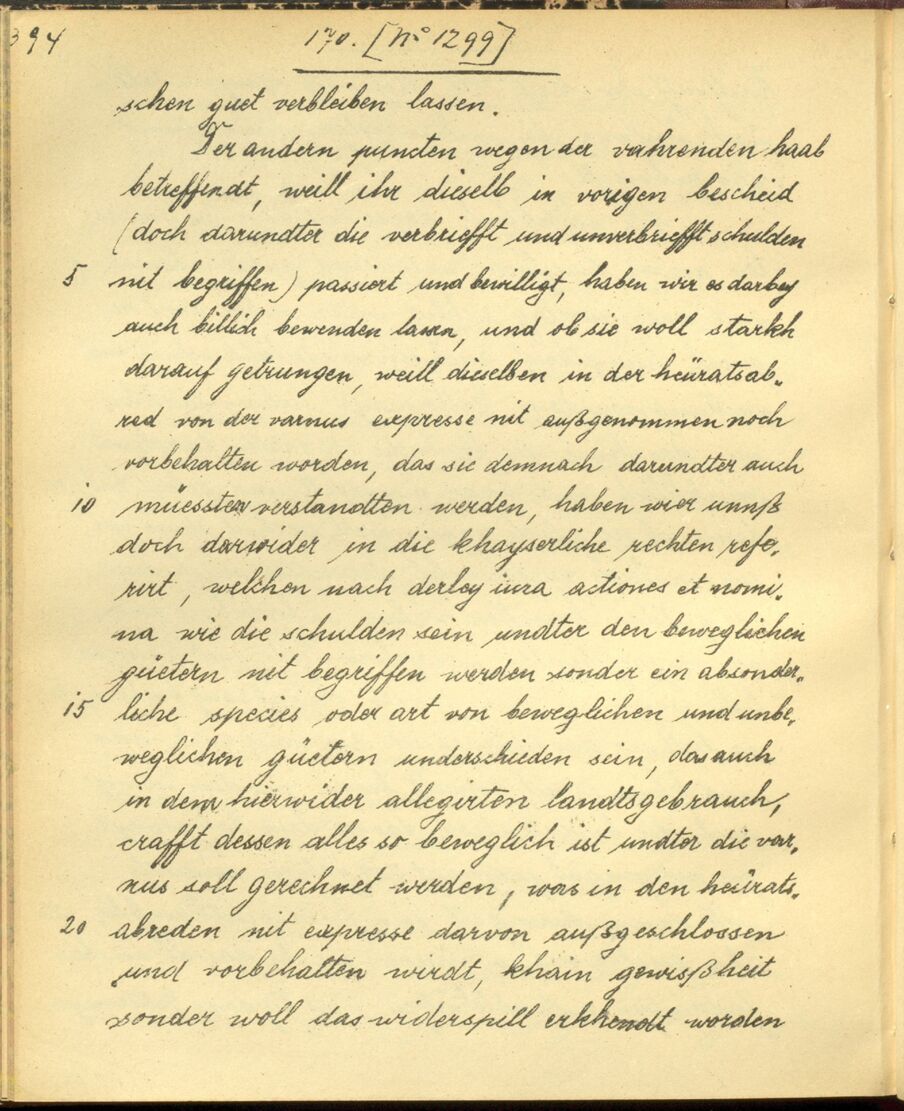 394
170. [No 1299]
schen guet verbleiben lassen.
Der andern puncten wegen der vahrenden haab
betreffendt, weill ihr dieselb in vorigen bescheid
(doch darundter die verbriefft und unverbriefft schulden
5 nit begriffen) passiert und bewilligt, haben wir es darbey
auch billich bewenden lassen, und ob sie woll starkh
darauf getrungen, weill dieselben in der heüratsab„
red von der varnus expresse nit außgenommen noch
vorbehalten worden, das sie demnach darundter auch
10 müessten verstandten werden, haben wier unnß
doch darwider in die khayserliche rechten refe„
rirt, welchen nach derley iura actiones et nomi„
na wie die schulden sein undter den beweglichen
güetern nit begriffen werden sonder ein absonder„
15 liche species oder art von beweglichen und unbe„
weglichen güetern underschieden sein, das auch
in dem hierwider allegirten landtsgebrauch,
crafft dessen alles so beweglich ist undter die var„
nus soll gerechnet werden, was in den heürats„
20 abreden nit expresse darvon außgeschlossen
und vorbehalten wirdt, khain gewißheit
sonder woll das widerspill erkhendt worden